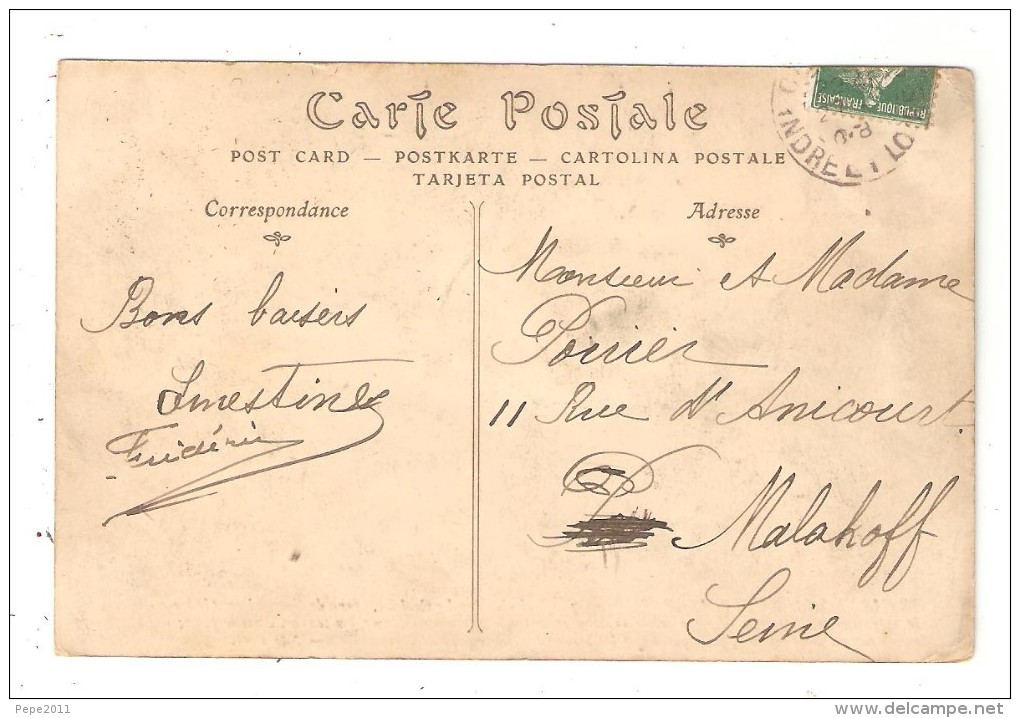 Carte Postale
POST CARD — POSTKARTE — CARTOLINA POSTALE
TARJETA POSTAL
REPUBLIQUE FRANÇAISE
INDRE ET LO
Correspondance
Bons baisers
Ernestine
Frédéric
Adresse
Monsieur et Madame
Poirier
11 Rue d'Anicourt
Malakoff
Seine
Pepe2011
www.delcampe.net